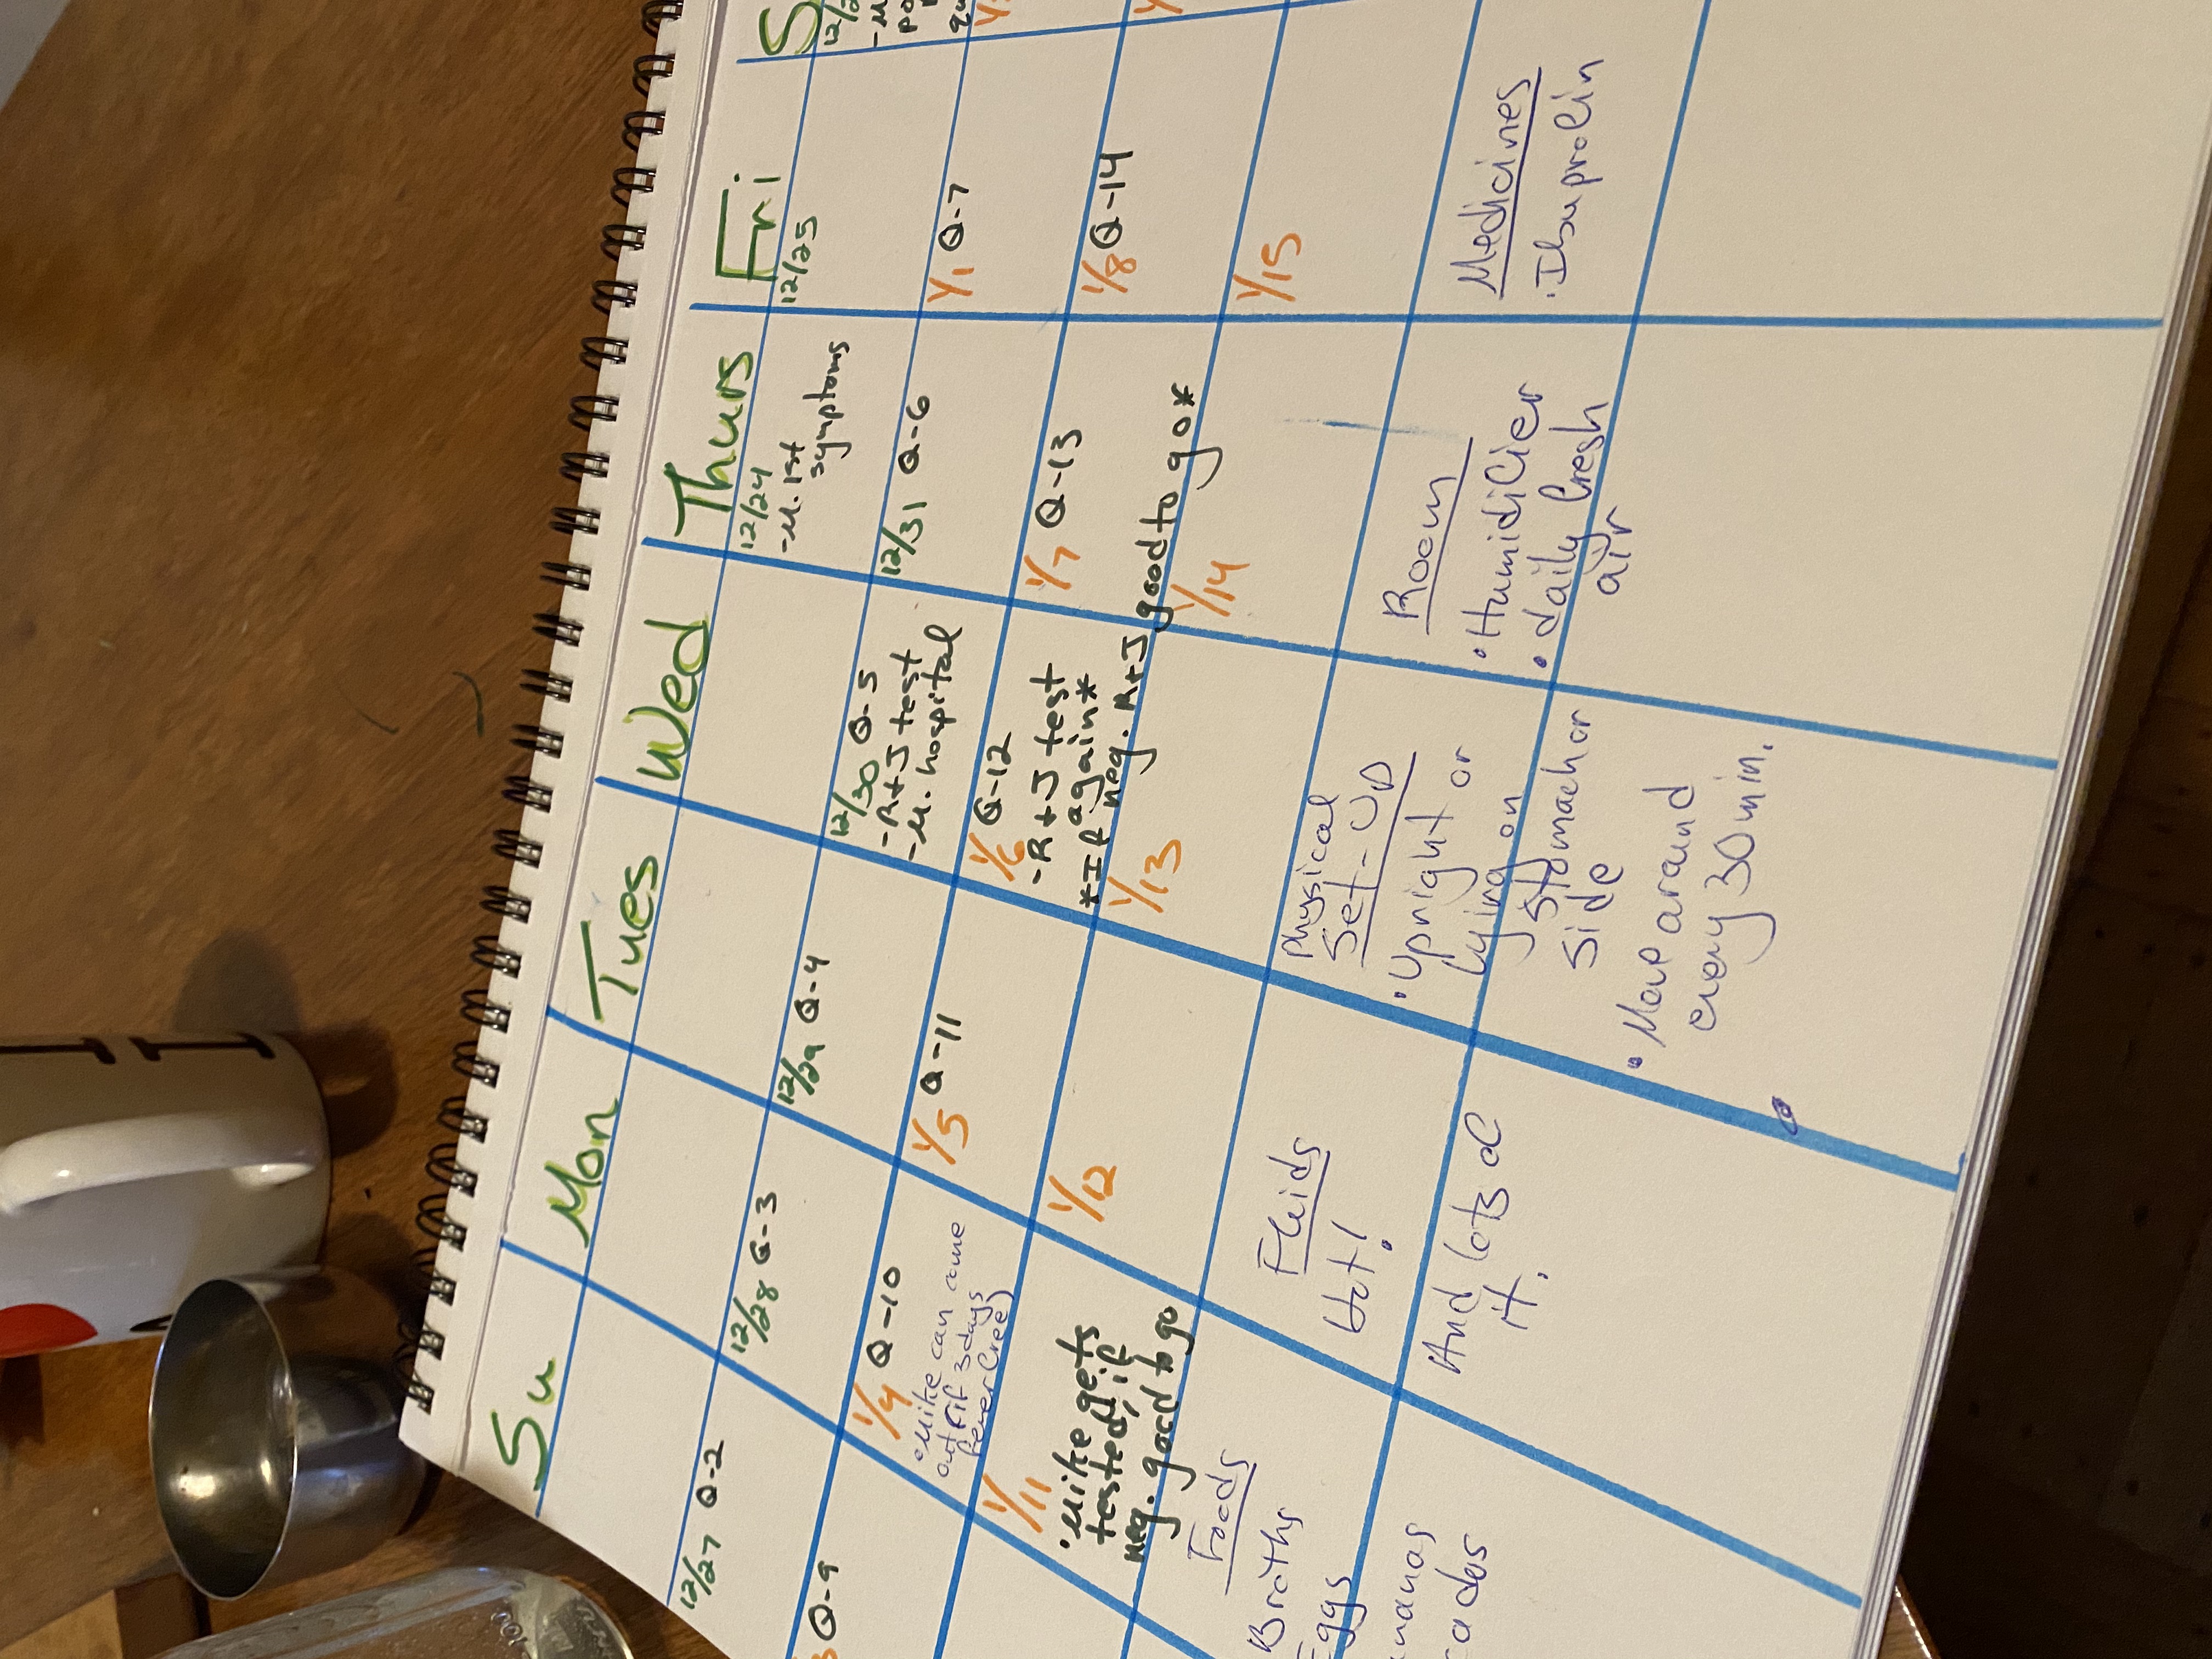 Su
Mon
Tues
Wed
Thurs
Fri
S
12/24
-M. 1st
symptoms
12/25
12/2
-M
po
qu
12/27 Q-2
12/28 Q-3
12/29 Q-4
12/30 Q-5
-R+J test
-M. hospital
12/31 Q-6
1/1 Q-7
Q-9
1/4 Q-10
•Mike can come
out (if 3 days
fever free)
1/5 Q-11
1/6 Q-12
-R+J test
again*
*If neg. R+J good to go*
1/7 Q-13
1/8 Q-14
1/11
•Mike gets
tested, if
neg. good to go
1/12
1/13
1/14
1/15
Foods
Broths
Eggs
ananas
cados
Fluids
Hot!
And lots of
it.
Physical
Set-Up
•Upright or
lying on
stomach or
side
•Move around
every 30 min.
Room
•Humidifier
•daily fresh
air
Medicines
•Ibuprofin
100